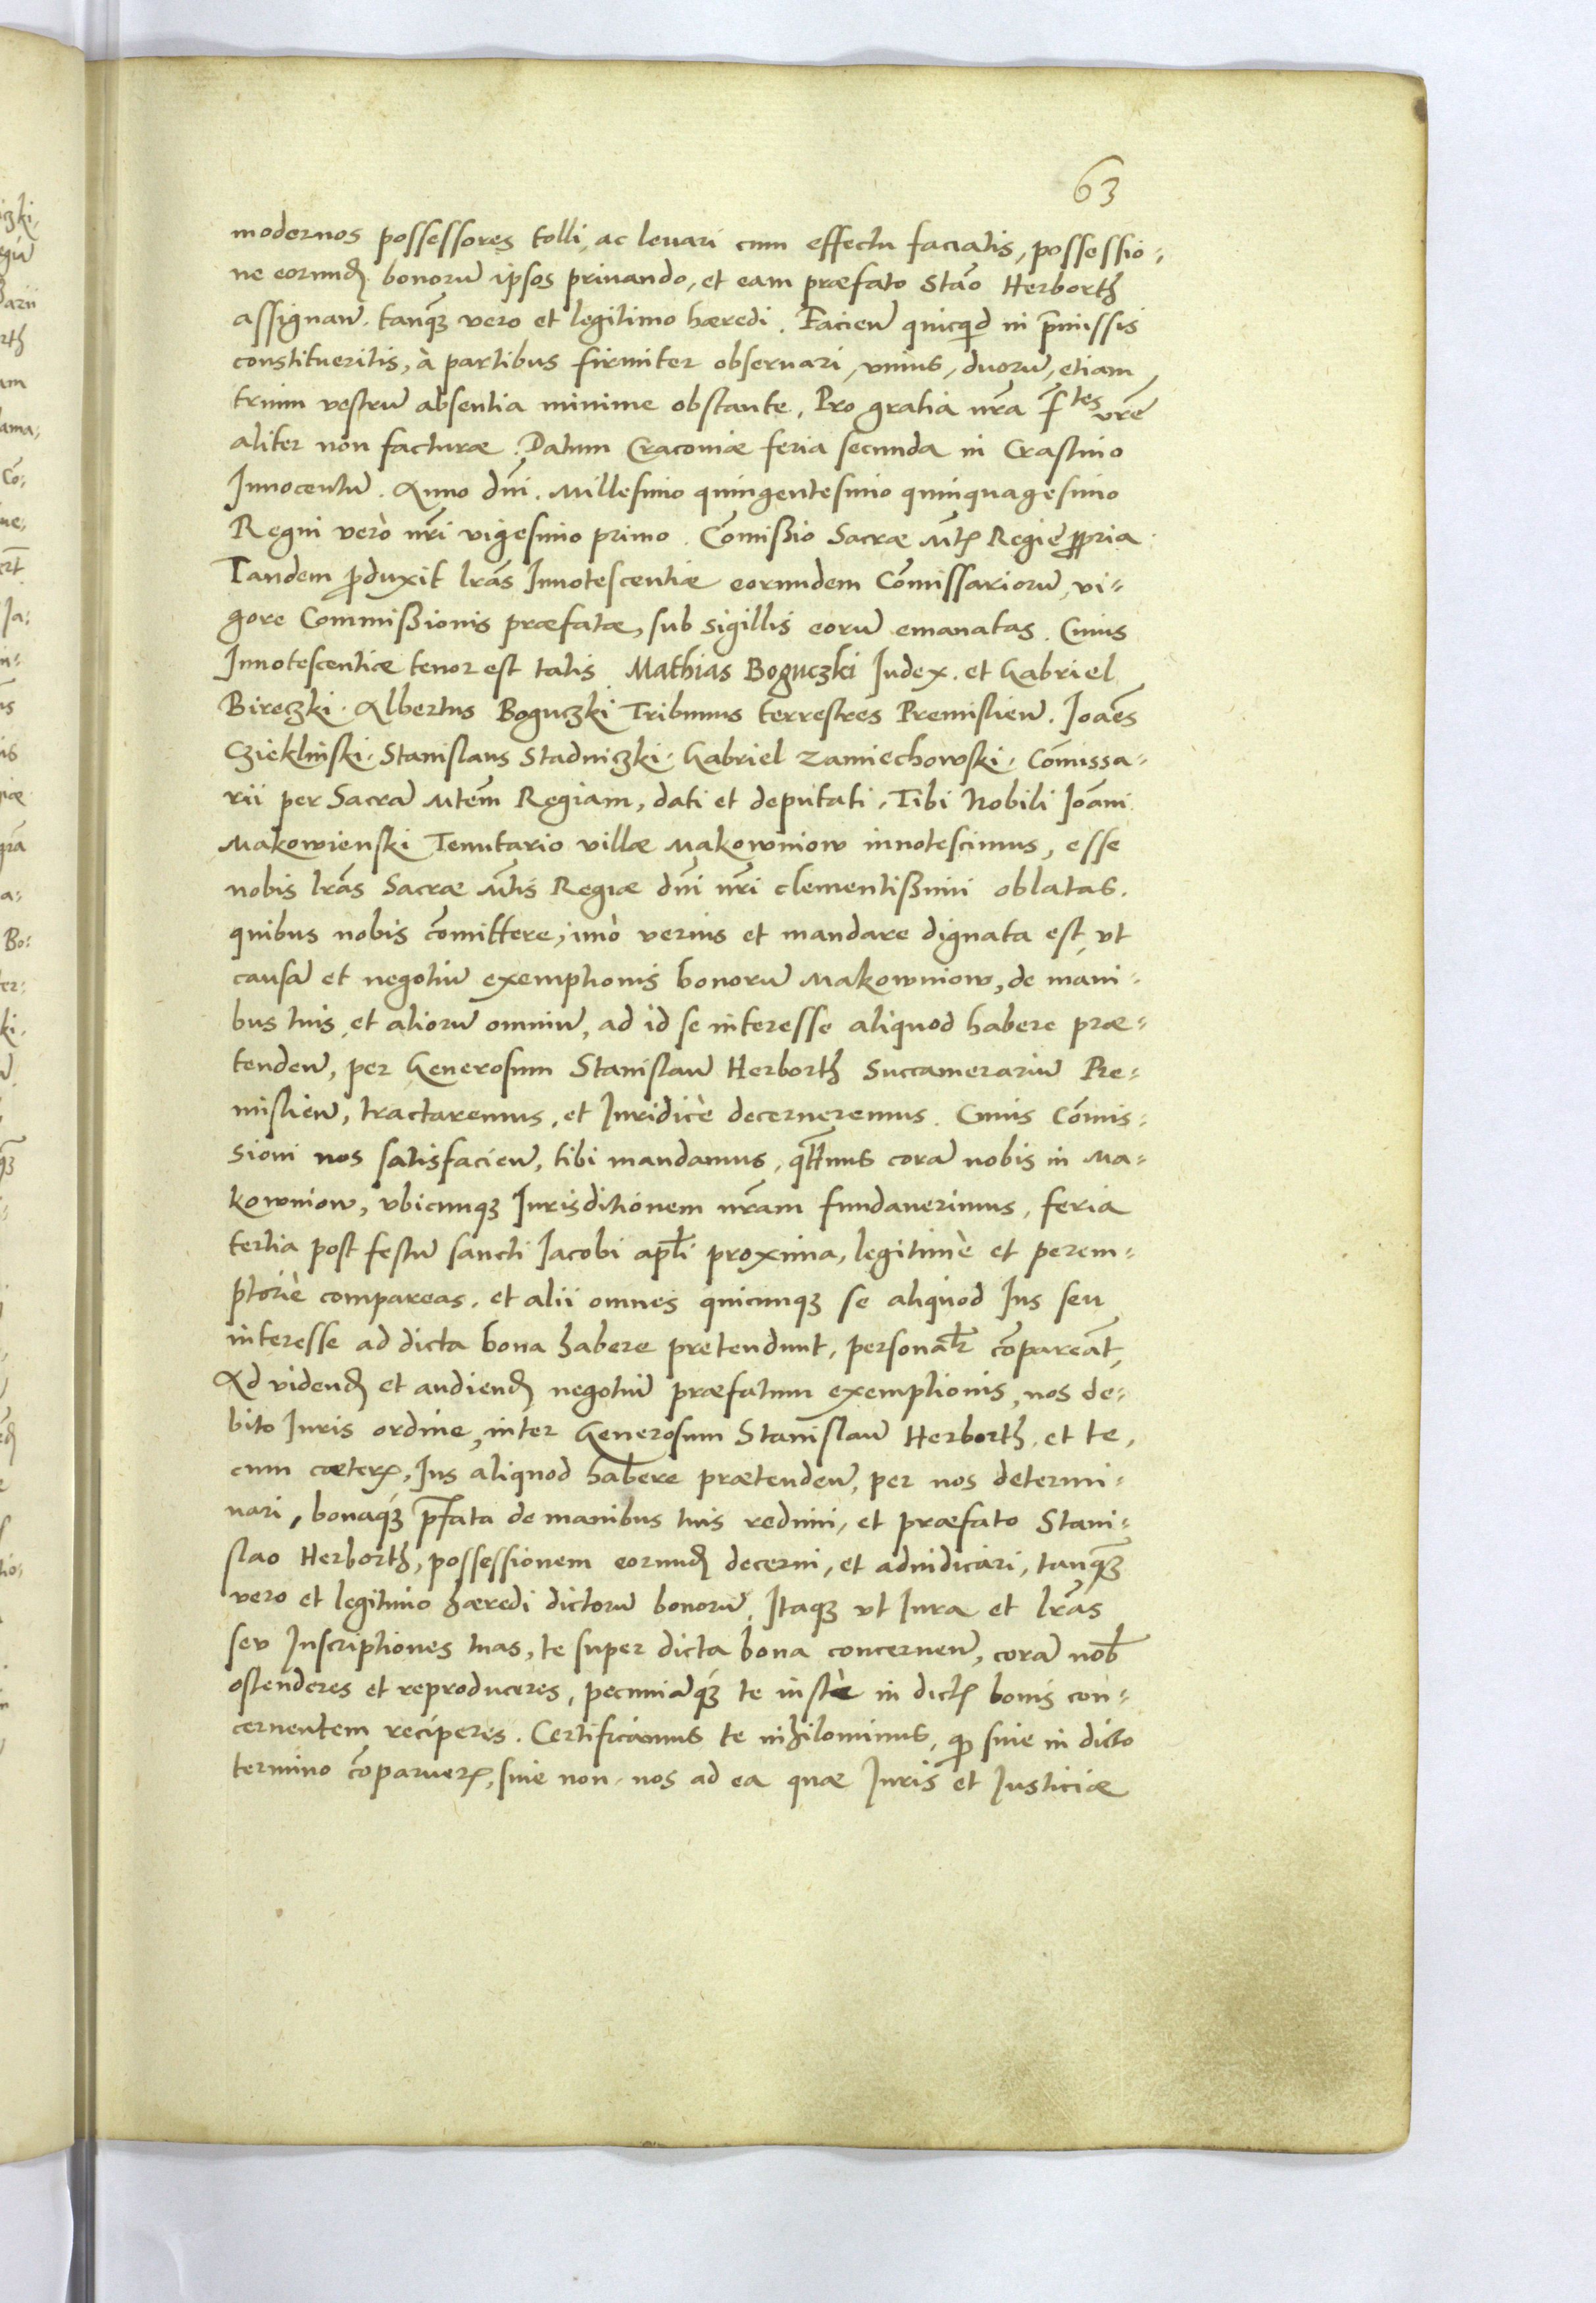 63
modernos possessores tolli, ac leuari cum effectu faciatis, possessio-
ne eorund. bonorū ipsos priuando, et eam præfato Stāo Herborth
assignan̄. tanq̄ꝫ vero et legitimo hæredi. Facien̄ quicq̄d in p̄missis
constitueritis, à partibus firmiter obseruari, vnius, duorū, etiam
trium vestrū absentia minime obstante. Pro gratia nr̄a f̄tes vrē
aliter non facturæ. Datum Cracouiæ feria secunda in Crastino
Innocentū. Anno dn̄i. Millesimo quingentesimo quinquagesimo
Regni verò nr̄i vigesimo primo. Com̄ißio Sacræ Mtꝭ Regiē ꝓpria.
Tandem ꝓduxit lrās Innotescentiæ eorumdem Com̄issariorū, vi-
gore Commißionis præfatæ, sub sigillis eorū emanatas. Cuius
Innotescentiæ tenor est talis Mathias Boguczki Iudex. et Gabriel
Bireczki. Albertus Boguczki Tribunus terrestres Premislien̄. Ioāēs
Czieklinski. Stanislaus Stadniczki. Gabriel Zamiechowski. Com̄issa-
rii per Sacrā Mtēm Regiam, dati et deputati. Tibi Nobili Ioāni
Makowienski Tenutario villæ Makowniow innotescimus, esse
nobis lrās Sacræ Mtis Regiæ dn̄i nr̄i clementißimi oblatas.
quibus nobis com̄ittere, imò verius et mandare dignata est, vt
causā et negotiū exemptionis bonorū Makowniow, de mani-
bus tuis, et aliorū omniū, ad id se interesse aliquod habere præ-
tenden̄, per Generosum Stanislaū Herborth Succamerariū Pre-
mislien̄, tractaremus, et Iuridicè decerneremus. Cuius Com̄is-
sioni nos satisfacien̄, tibi mandamus, q̄ttnus corā nobis in Ma-
kowniow, vbicunqꝫ Iurisditionem nr̄am fundauerimus, feria
tertia post festū sancti Iacobi apl̄i proxima, legitimè et perem-
ptoriè compareas, et alii omnes quicunqꝫ se aliquod Ius seu
interesse ad dicta bona habere pretendunt, personal̄r com̄pareāt,
Ad videnđ et audienđ negotiū præfatum exemptionis, nos de-
bito Iuris ordine, inter Generosum Stanislaū Herborth. et te,
cum cæterꝭ, Ius aliquod habere prætenden̄, per nos determi-
nari, bonaqꝫ p̄fata de manibus tuis redimi, et præfato Stani-
slao Herborth, possessionem eorumđ decerni, et adiudicari, tanq̄ꝫ
vero et legitimo hæredi dictorū bonorū. Itaqꝫ vt Iura et lrās
seu Inscriptiones tuas, te super dicta bona concernen̄, corā nob̄
ostenderes et reproduceres, pecuniāqꝫ te iustè in dictꝭ bonis con-
cernentem reciperes. Certificamus te nihilominus, ꝙ siue in dicto
termino com̄paruerꝭ, siue non, nos ad ea quæ Iuris et Iusticiæ